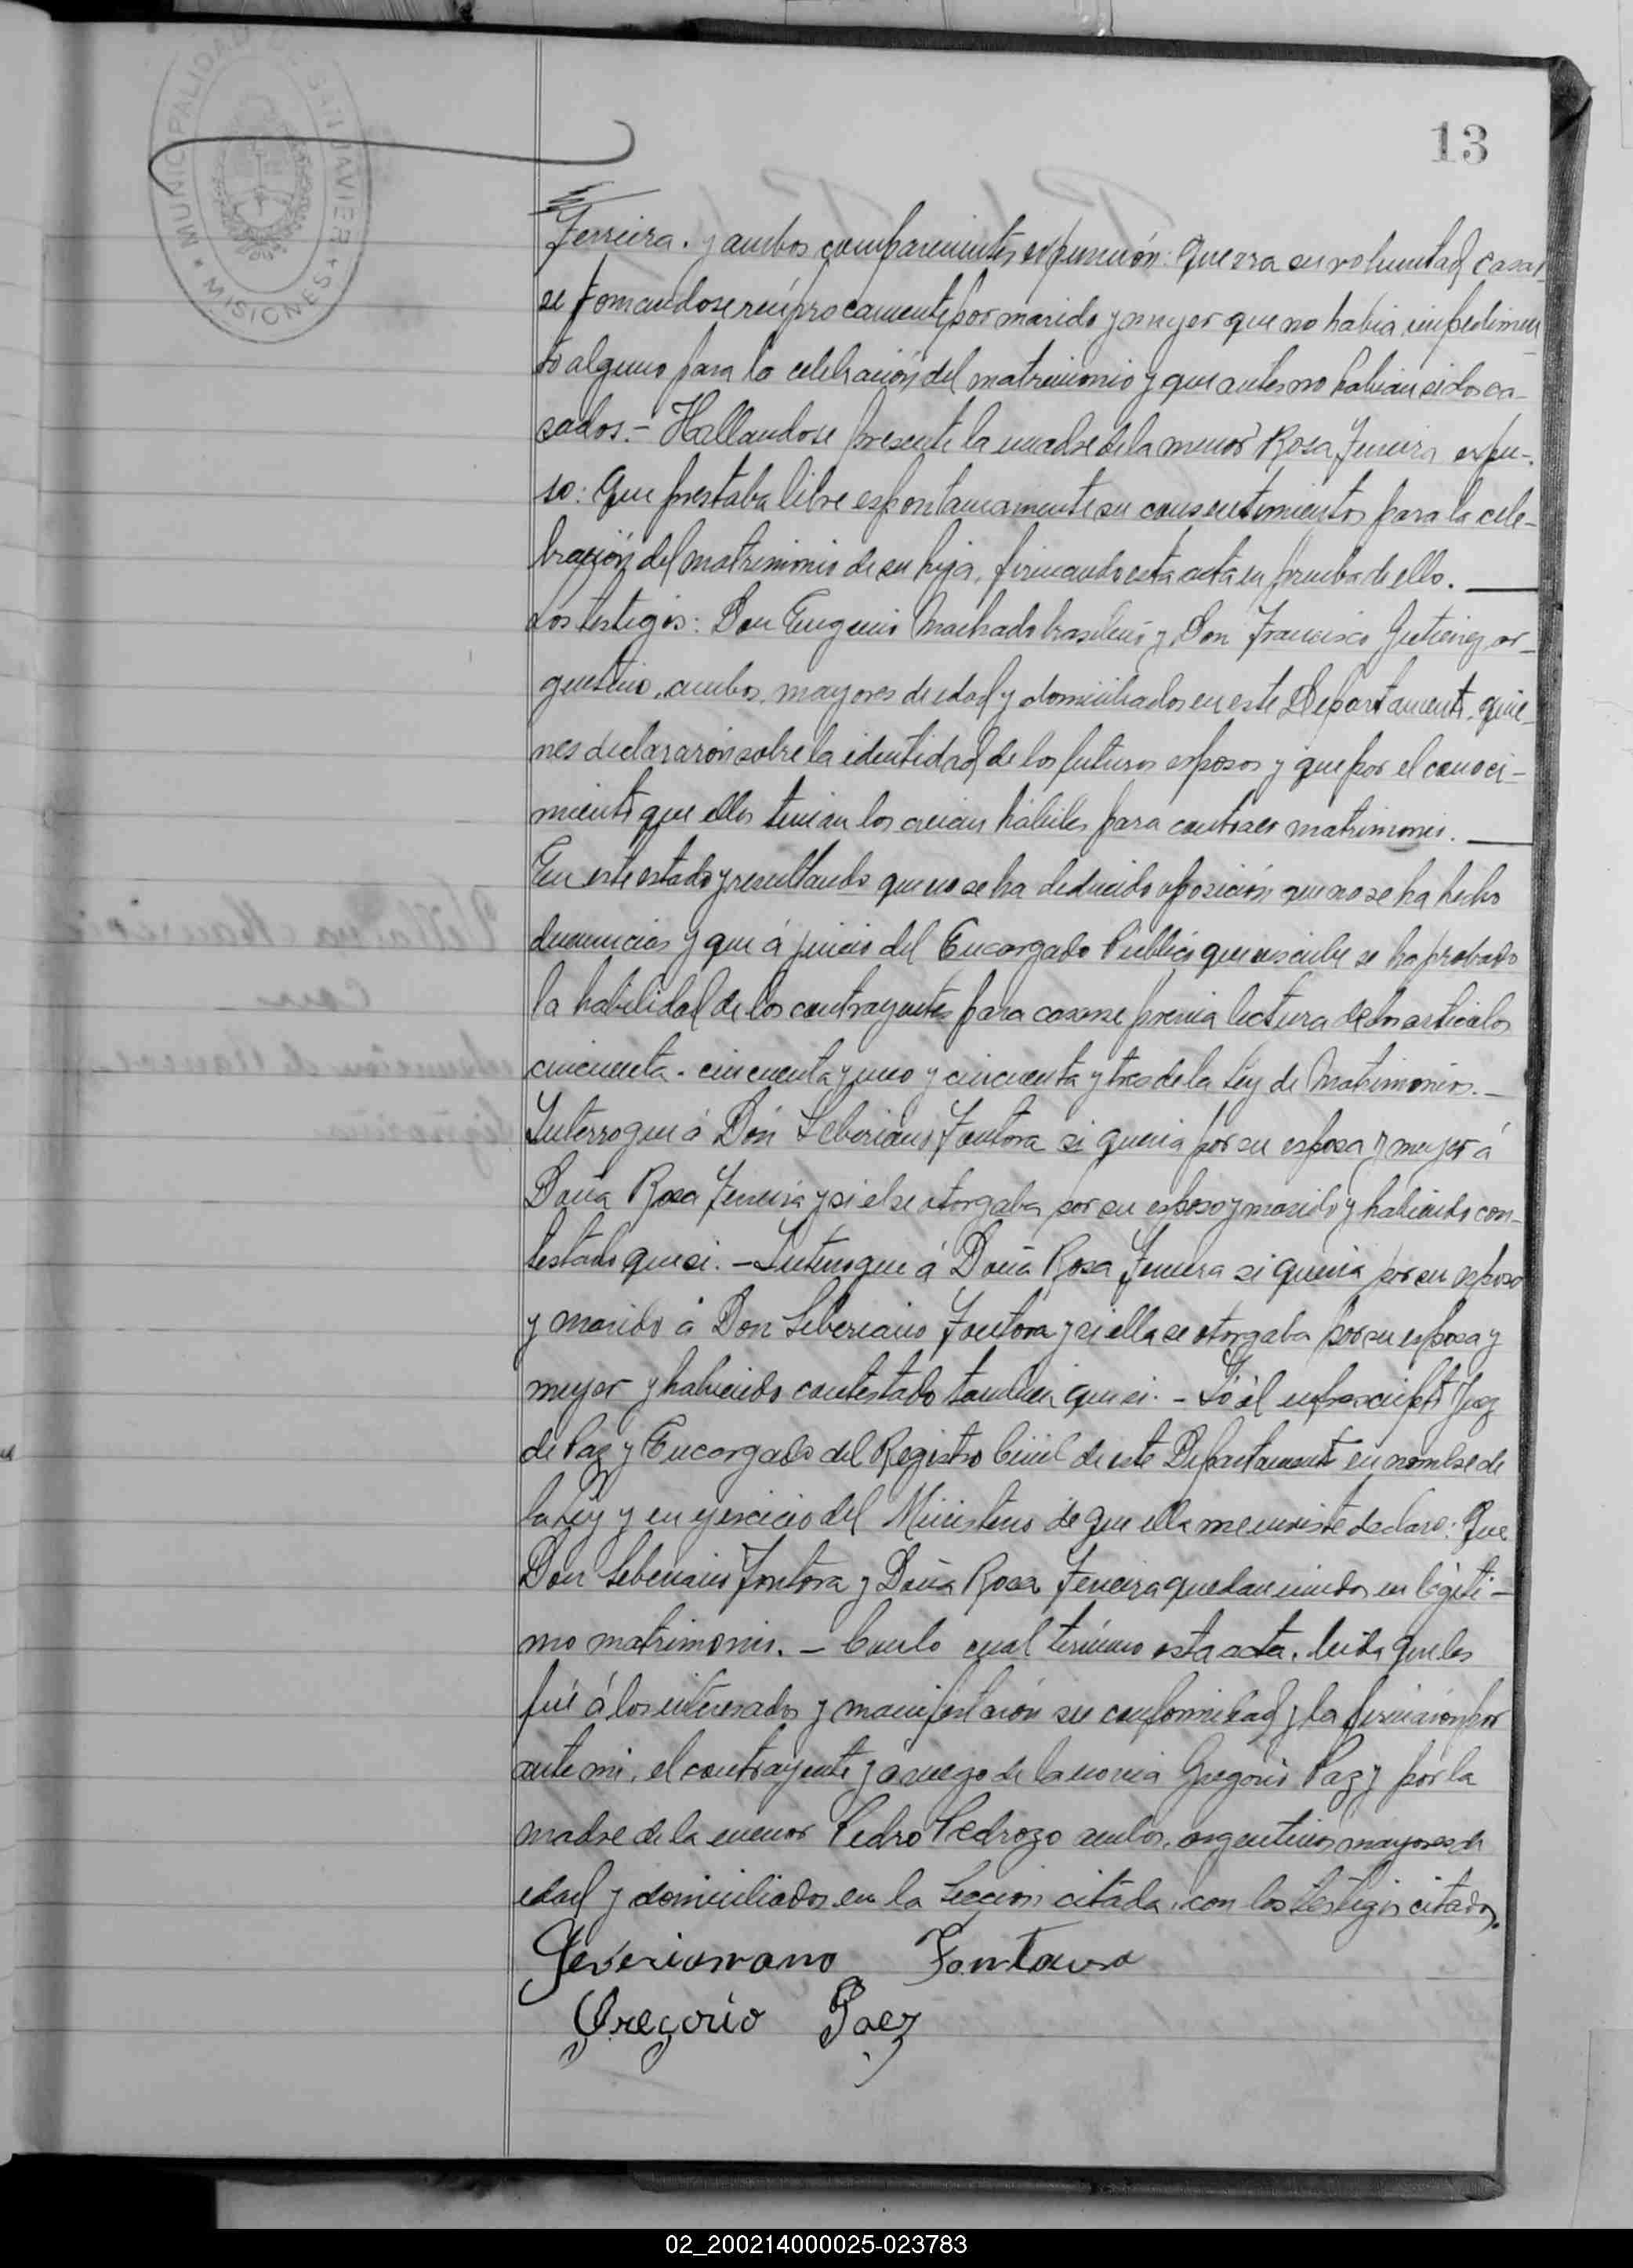 MUNICIPALIDAD DE SAN JAVIER
* MISIONES *
13
Ferreira. y ambos comparecientes expucieron: Que era su voluntad casar-
se tomandose recíprocamente por marido y muger que no habia impedimen-
to alguno para la celebración del matrimonio y que antes no habian sidos ca-
sados.- Hallandose presente la madre de la menor Rosa Ferreira expu-
so: Que prestaba libre espontaneamente su consentimientos para la cele-
bración del matrimonio de su hija, firmando esta acta en prueba de ello.
Los testigos: Don Eugenio Machado brasilero y Don Francisco Gutierrez ar-
gentino, ambos, mayores de edad y domiciliados en este Departamento, quie-
nes declararón sobre la identidad de los futuros esposos y que por el conoci-
miento que ellos tenian los creian hábiles para contraer matrimonio.
En este estado y resultando que no se ha deducido oposición que no se ha hecho
denuncias y que á juicio del Encargado Público que suscribe se ha probado
la habilidad de los contrayentes para casarse previa lectura de los articulos
cincuenta. cincuenta y uno y cincuenta y tres de la Ley de Matrimonios.-
Interrogue á Dón Seberiano Fontora si queria por su esposa y muger á
Doña Rosa Ferreira y si el se otorgaba por su esposo y marido y habiendo con-
testado que si.- Interrogue á Doña Rosa Ferreira si queria por su esposo
y marido á Don Seberiano Fontora y si ella se otorgaba por su esposa y
muger y habiendo contestado tambien que si.- Yo él infrascripto Juez
de Paz y Encargado del Registro Civil de este Departamento en nombre de
la Ley y en ejercicio del Ministerio de que ella me inviste declaro: Que
Don Seberiano Fontora y Doña Rosa Ferreira quedan unidos en légiti-
mo matrimonio.- Con lo cual términó esta acta. leida que les
fué á los interesados y manifestarón su conformidad y la firmarón por
ante mi, el contrayente y a ruego de la novia Gregorio Paez y por la
madre de la menor Pedro Pedrozo ambos, argentinos mayores de
edad y domiciliados en la Seccion citada, con los testigos citados.
Severiano Fontoura
Gregorio Paez
02_200214000025-023783